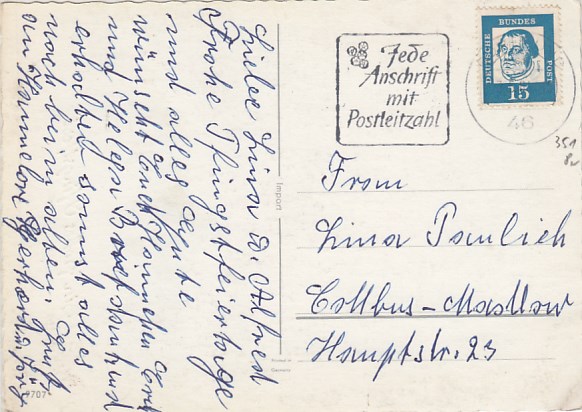 Liebe Lina & Alfred
Frohe Pfingstfeiertage
und alles Gute
wünscht Euch Hannchen
und Helga Brief
erhalten sonst alles
noch beim alten. Gruß
an Hannelore Gerhard
7707
Import
Printed in
Germany
Jede
Anschrift
mit
Postleitzahl
46
DEUTSCHE
BUNDES
POST
15
351
Frau
Lina Paulich
Cottbus-Madlow
Hauptstr. 23